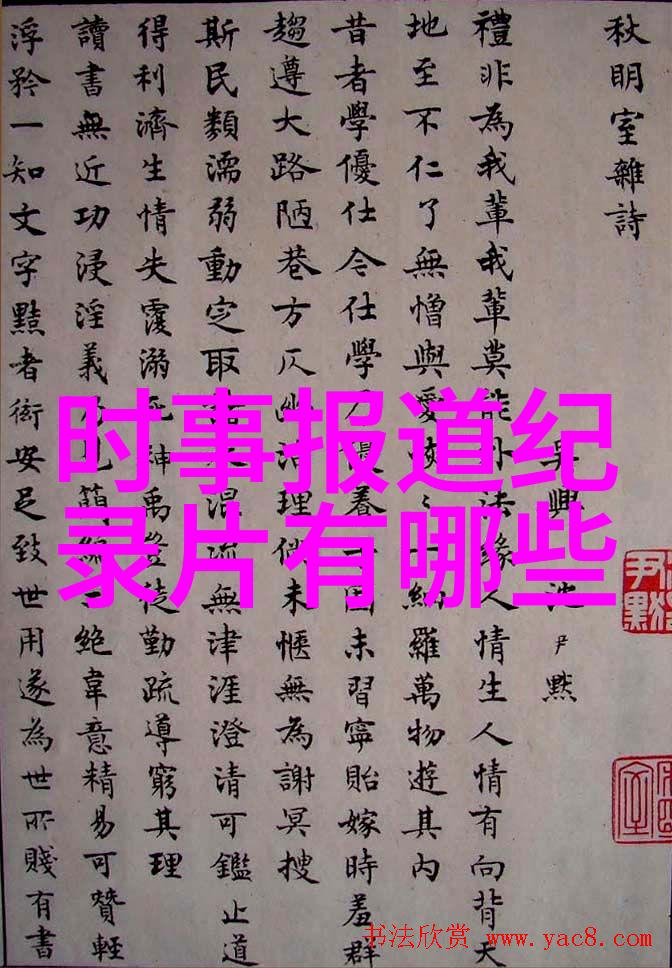 秋明室雜詩
吳興 沈尹默
禮非為我輩我輩莫能外法緣人情生人情有向背天
地至不仁了無憎與愛
一網羅萬物遊其內
昔者學優仕今仕學
未習寧貽嫁時羞群
趨遵大路陋巷方仄
治理倘未愜無為謝冥搜
斯民類濡弱動定取
混流無津涯澄清可鑑止道
得利濟生情失覆溺
神禹豈徒勤疏導窮其理
讀書無近功浸淫義
見簡編三絕韋意精易可贊輕
浮矜一知文字黠者衒安足致世用遂為世所賤有書
时事报道纪
录片有哪些
尹默
书法欣赏 www.yac8.com